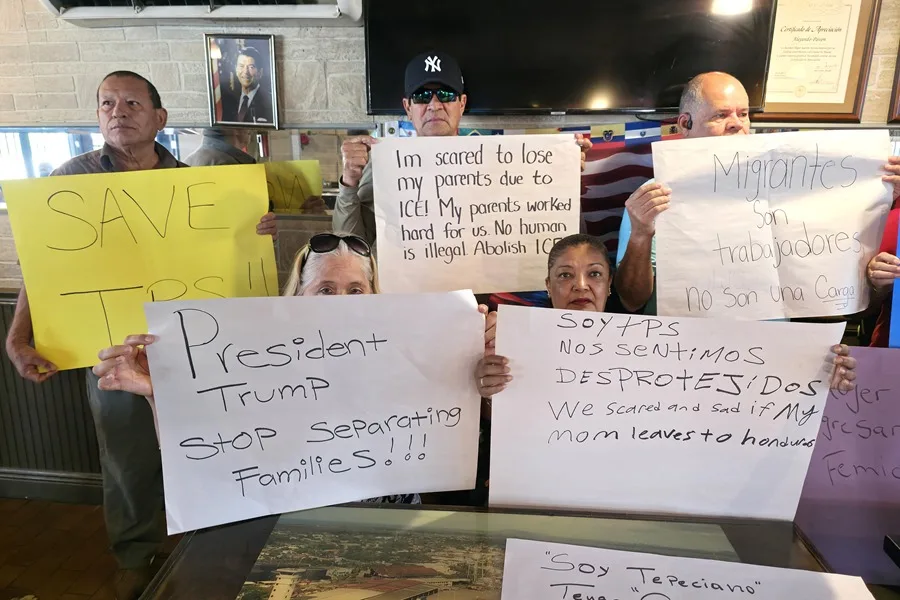 Certificado de Apreciación
Alejandro Pavón
NY
SAVE
TPS"
Im scared to lose
my parents due to
ICE! My parents worked
hard for us. No human
is illegal. Abolish ICE
Migrantes
Son
trabajadores
no son una Carga
President
Trump
Stop Separating
Families!!!
Soy tPS
NOS SENtiMOS
DESPROtEJiDOS
We scared and sad if My
mom leaves to honduras
"Soy Tepeciano"